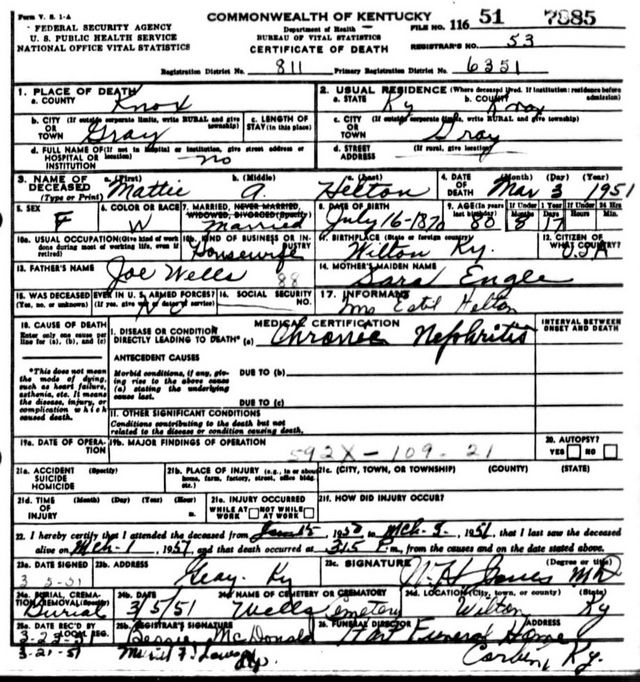 Form V. S. 1-A
FEDERAL SECURITY AGENCY
U. S. PUBLIC HEALTH SERVICE
NATIONAL OFFICE VITAL STATISTICS
COMMONWEALTH OF KENTUCKY
Department of Health
BUREAU OF VITAL STATISTICS
CERTIFICATE OF DEATH
FILE NO. 116 51 7885
REGISTRAR'S NO. 53
Registration District No. 811 Primary Registration District No. 6351
1. PLACE OF DEATH
a. COUNTY Knox
2. USUAL RESIDENCE (Where deceased lived. If institution: residence before admission)
a. STATE Ky b. COUNTY Knox
b. CITY (If outside corporate limits, write RURAL and give township) OR TOWN Gray
c. LENGTH OF STAY (in this place)
c. CITY (If outside corporate limits, write RURAL and give township) OR TOWN Gray
d. FULL NAME OF (If not in hospital or institution, give street address or location) HOSPITAL OR INSTITUTION no
d. STREET ADDRESS (If rural, give location)
3. NAME OF DECEASED (Type or Print) a. (First) Mattie b. (Middle) A. c. (Last) Helton
4. DATE OF DEATH (Month) (Day) (Year) Mar 3 1951
5. SEX F
6. COLOR OR RACE W
7. MARRIED, NEVER MARRIED, WIDOWED, DIVORCED (Specify) Married
8. DATE OF BIRTH July 16-1870
9. AGE (In years last birthday) 80 If Under 1 Year Months 8 Days 17 If Under 24 Hrs Hours Min.
10a. USUAL OCCUPATION (Give kind of work done during most of working life, even if retired)
10b. KIND OF BUSINESS OR INDUSTRY Housewife
11. BIRTHPLACE (State or foreign country) Wilton Ky.
12. CITIZEN OF WHAT COUNTRY? USA
13. FATHER'S NAME Joe Wells 88
14. MOTHER'S MAIDEN NAME Sara Engle
15. WAS DECEASED EVER IN U. S. ARMED FORCES? (Yes, no, or unknown) (If yes, give war or dates of service) No
16. SOCIAL SECURITY NO.
17. INFORMANT Mrs Estil Helton
18. CAUSE OF DEATH
Enter only one cause per line for (a), (b), and (c)
MEDICAL CERTIFICATION
INTERVAL BETWEEN ONSET AND DEATH
I. DISEASE OR CONDITION DIRECTLY LEADING TO DEATH* (a) Chronic Nephritis
*This does not mean the mode of dying, such as heart failure, asthenia, etc. It means the disease, injury, or complication which caused death.
ANTECEDENT CAUSES
Morbid conditions, if any, giving rise to the above cause (a) stating the underlying cause last.
DUE TO (b)
DUE TO (c)
II. OTHER SIGNIFICANT CONDITIONS
Conditions contributing to the death but not related to the disease or condition causing death.
19a. DATE OF OPERATION
19b. MAJOR FINDINGS OF OPERATION
592X-109-21
20. AUTOPSY?
YES NO
21a. ACCIDENT SUICIDE HOMICIDE (Specify)
21b. PLACE OF INJURY (e.g., in or about home, farm, factory, street, office bldg., etc.)
21c. (CITY, TOWN, OR TOWNSHIP) (COUNTY) (STATE)
21d. TIME OF INJURY (Month) (Day) (Year) (Hour)
21e. INJURY OCCURRED
WHILE AT WORK NOT WHILE AT WORK
21f. HOW DID INJURY OCCUR?
22. I hereby certify that I attended the deceased from Jan 15, 1950 to Mch. 3, 1951, that I last saw the deceased
alive on Mch-1, 1951, and that death occurred at 315 P.m., from the causes and on the date stated above.
23a. DATE SIGNED 3-5-51
23b. ADDRESS Gray. Ky
23c. SIGNATURE (Degree or title) Jones MD
24a. BURIAL, CREMATION REMOVAL (Specify) Burial
24b. DATE 3/5/51
24c. NAME OF CEMETERY OR CREMATORY Wells Cemetery
24d. LOCATION (City, town, or county) (State) Wilton Ky
25a. DATE REC'D BY LOCAL REG. 3-23-51
25b. REGISTRAR'S SIGNATURE Bessie McDonald
26. FUNERAL DIRECTOR ADDRESS Hart Funeral Home
3-21-51
Corbin, Ky.